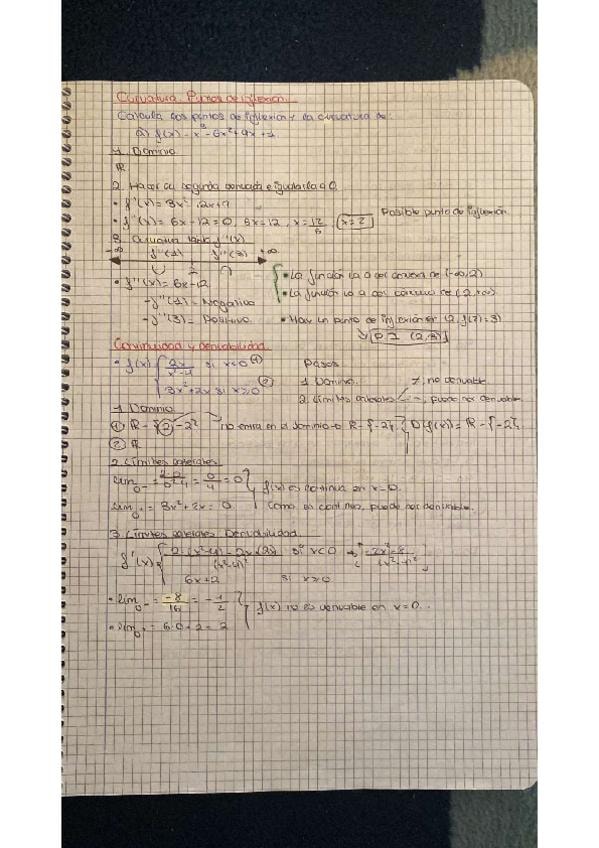 Curvatura. Puntos de inflexión.
Calcula los puntos de inflexión y la curvatura de:
a) f(x) = x³ - 6x² + 9x + 1
1. Dominio
ℝ
2. Hacer la segunda derivada e igualarla a 0.
• f'(x) = 3x² - 12x + 9
• f''(x) = 6x - 12 = 0, 6x = 12, x = 12/6, x = 2 Posible punto de inflexión
3. f''(x).
-∞ f''(1) f''(3) +∞
2
• f''(x) = 6x - 12
- f''(1) = Negativo
- f''(3) = Positivo
• La función va a ser convexa de (-∞, 2)
• La función va a ser cóncava de (2, +∞)
• Hay un punto de inflexión en (2, f(2) = 3)
P.I (2, 3)
Continuidad y derivabilidad
• f(x) { 2x/(x²-4) si x<0 ①
3x² + 2x si x≥0 ②
Pasos
1. Dominio. no derivable
2. Límites laterales = , puede ser derivable
1. Dominio
① ℝ - {2, -2} no entra en el dominio → ℝ - {-2} } D(f(x)) = ℝ - {-2}
② ℝ
2. Límites laterales
lim 0⁻ = 2·0/(0²-4) = 0/4 = 0
lim 0⁺ = 3x² + 2x = 0
f(x) es continua en x=0.
Como es continua, puede ser derivable.
3. Límites laterales Derivabilidad
f'(x) { (2·(x²-4) - 2x(2x))/(x²-4)² si x<0 → [(-2x²-8)/(x²-4)²]
6x + 2 si x≥0
• lim 0⁻ = -8/16 = -1/2
• lim 0⁺ = 6·0 + 2 = 2
f(x) no es derivable en x=0.